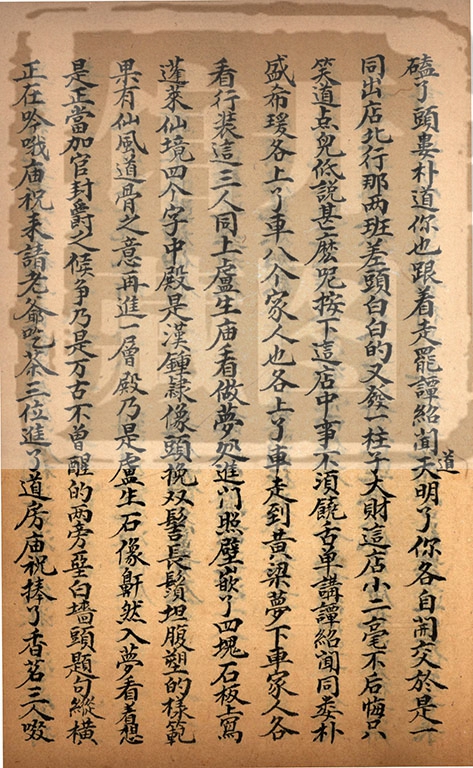 磕了頭婁朴道你也跟着走罷譚紹聞道天明了你各自開交於是一
同出店北行那两班差頭白白的又發一柱子大財這店小二毫不后悔只
笑道点兒低說甚麽呢按下這店中事不須饒舌单講譚紹聞同娄朴
盛希瑗各上了車八个家人也各上了車走到黄梁夢下車家人各
看行装這三人同上盧生庙看做夢处進門照壁嵌了四塊石板上寫
蓬萊仙境四个字中殿是漢鍾隸像頭挽双髻長鬚坦腹塑的様範
果有仙風道骨之意再進一層殿乃是盧生石像鼾然入夢看着想
是正當加官封爵之候争乃是万古不曾醒的两旁堊白墻頭題句縱横
正在吟哦庙祝来請老爺吃茶三位進了道房庙祝捧了香茗三人啜